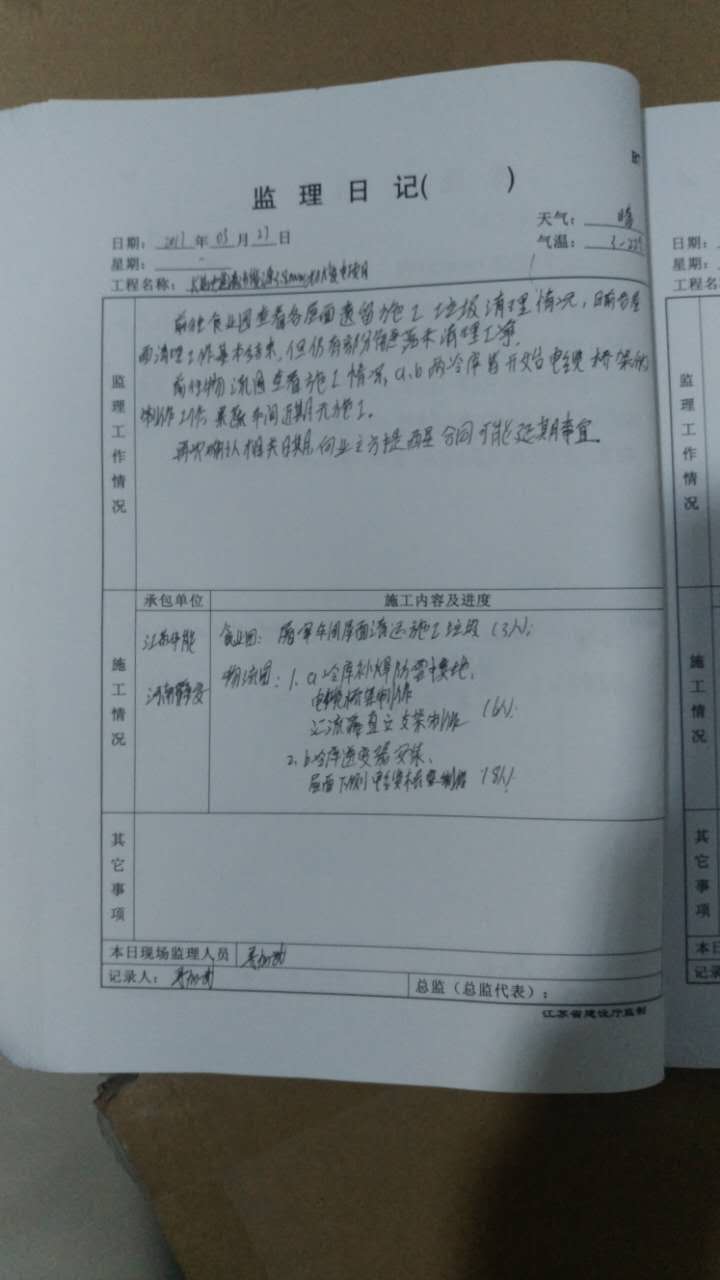 监理日记( )
天气: 晴
日期: 2017年03月27日
气温: 3-22℃
星期: 一
工程名称:
监理工作情况
前往食业园查看各屋面遗留施工垃圾清理情况,目前各屋
面清理工作基本结束,但仍有部分 清理工等。
前往物流园查看施工情况,a.b两冷库皆开始电缆桥架的
制作工作 果蔬车间近期无施工。
再次确认相关日期,向业主方提 合同可能延期事宜。
承包单位
施工内容及进度
施工情况
江苏华能
河南
食业园: 屠宰车间屋面清运施工垃圾(3人);
物流园: 1. a冷库补焊防雷接地、
电缆桥架制作
汇流箱直立支架制作 (6人)
2. b冷库逆变器安装、
屋面下侧电缆桥架制作 (8人)
其它事项
本日现场监理人员
记录人:
总监(总监代表):
江苏省建设厅监制
日期:
星期:
工程名
监理工作情况
施工情况
其它事项
本日
记录